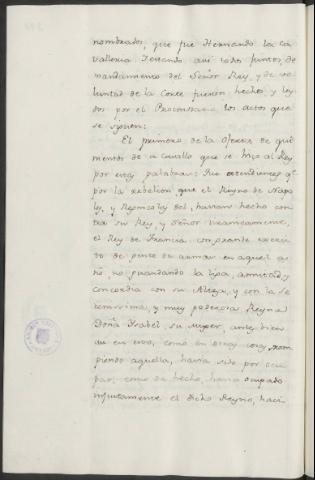 nombrados, que fue Hernando la Ca-
valleria Estando assi todos juntos, de
mandamiento del Señor Rey, y de vo-
luntad de la Corte fueron hechos y ley-
dos por el Prothonotario los actos que
se siguen:
El primero de la Oferta de qui-
nientos de a cavallo que se hizo al Rey
por estas palabras:
por la rebelion que el Reyno de Napo-
les, y Regnicolas del, havian hecho con-
tra su Rey, y Señor
el Rey de Francia con grande exerci-
to de gente de armas en aquel Rey-
no, no guardando la liga, amistad y
concordia con su Alteza, y con la Se-
renissima, y muy poderosa Reyna
Doña Ysabel su muger, antes bien
en esto, como en otras cosas, rom-
piendo aquella, havia sido por ocu-
par, como de hecho, havia ocupado
injustamente el dicho Reyno, haci-